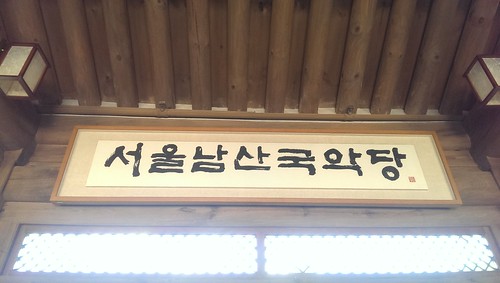 서울남산국악당